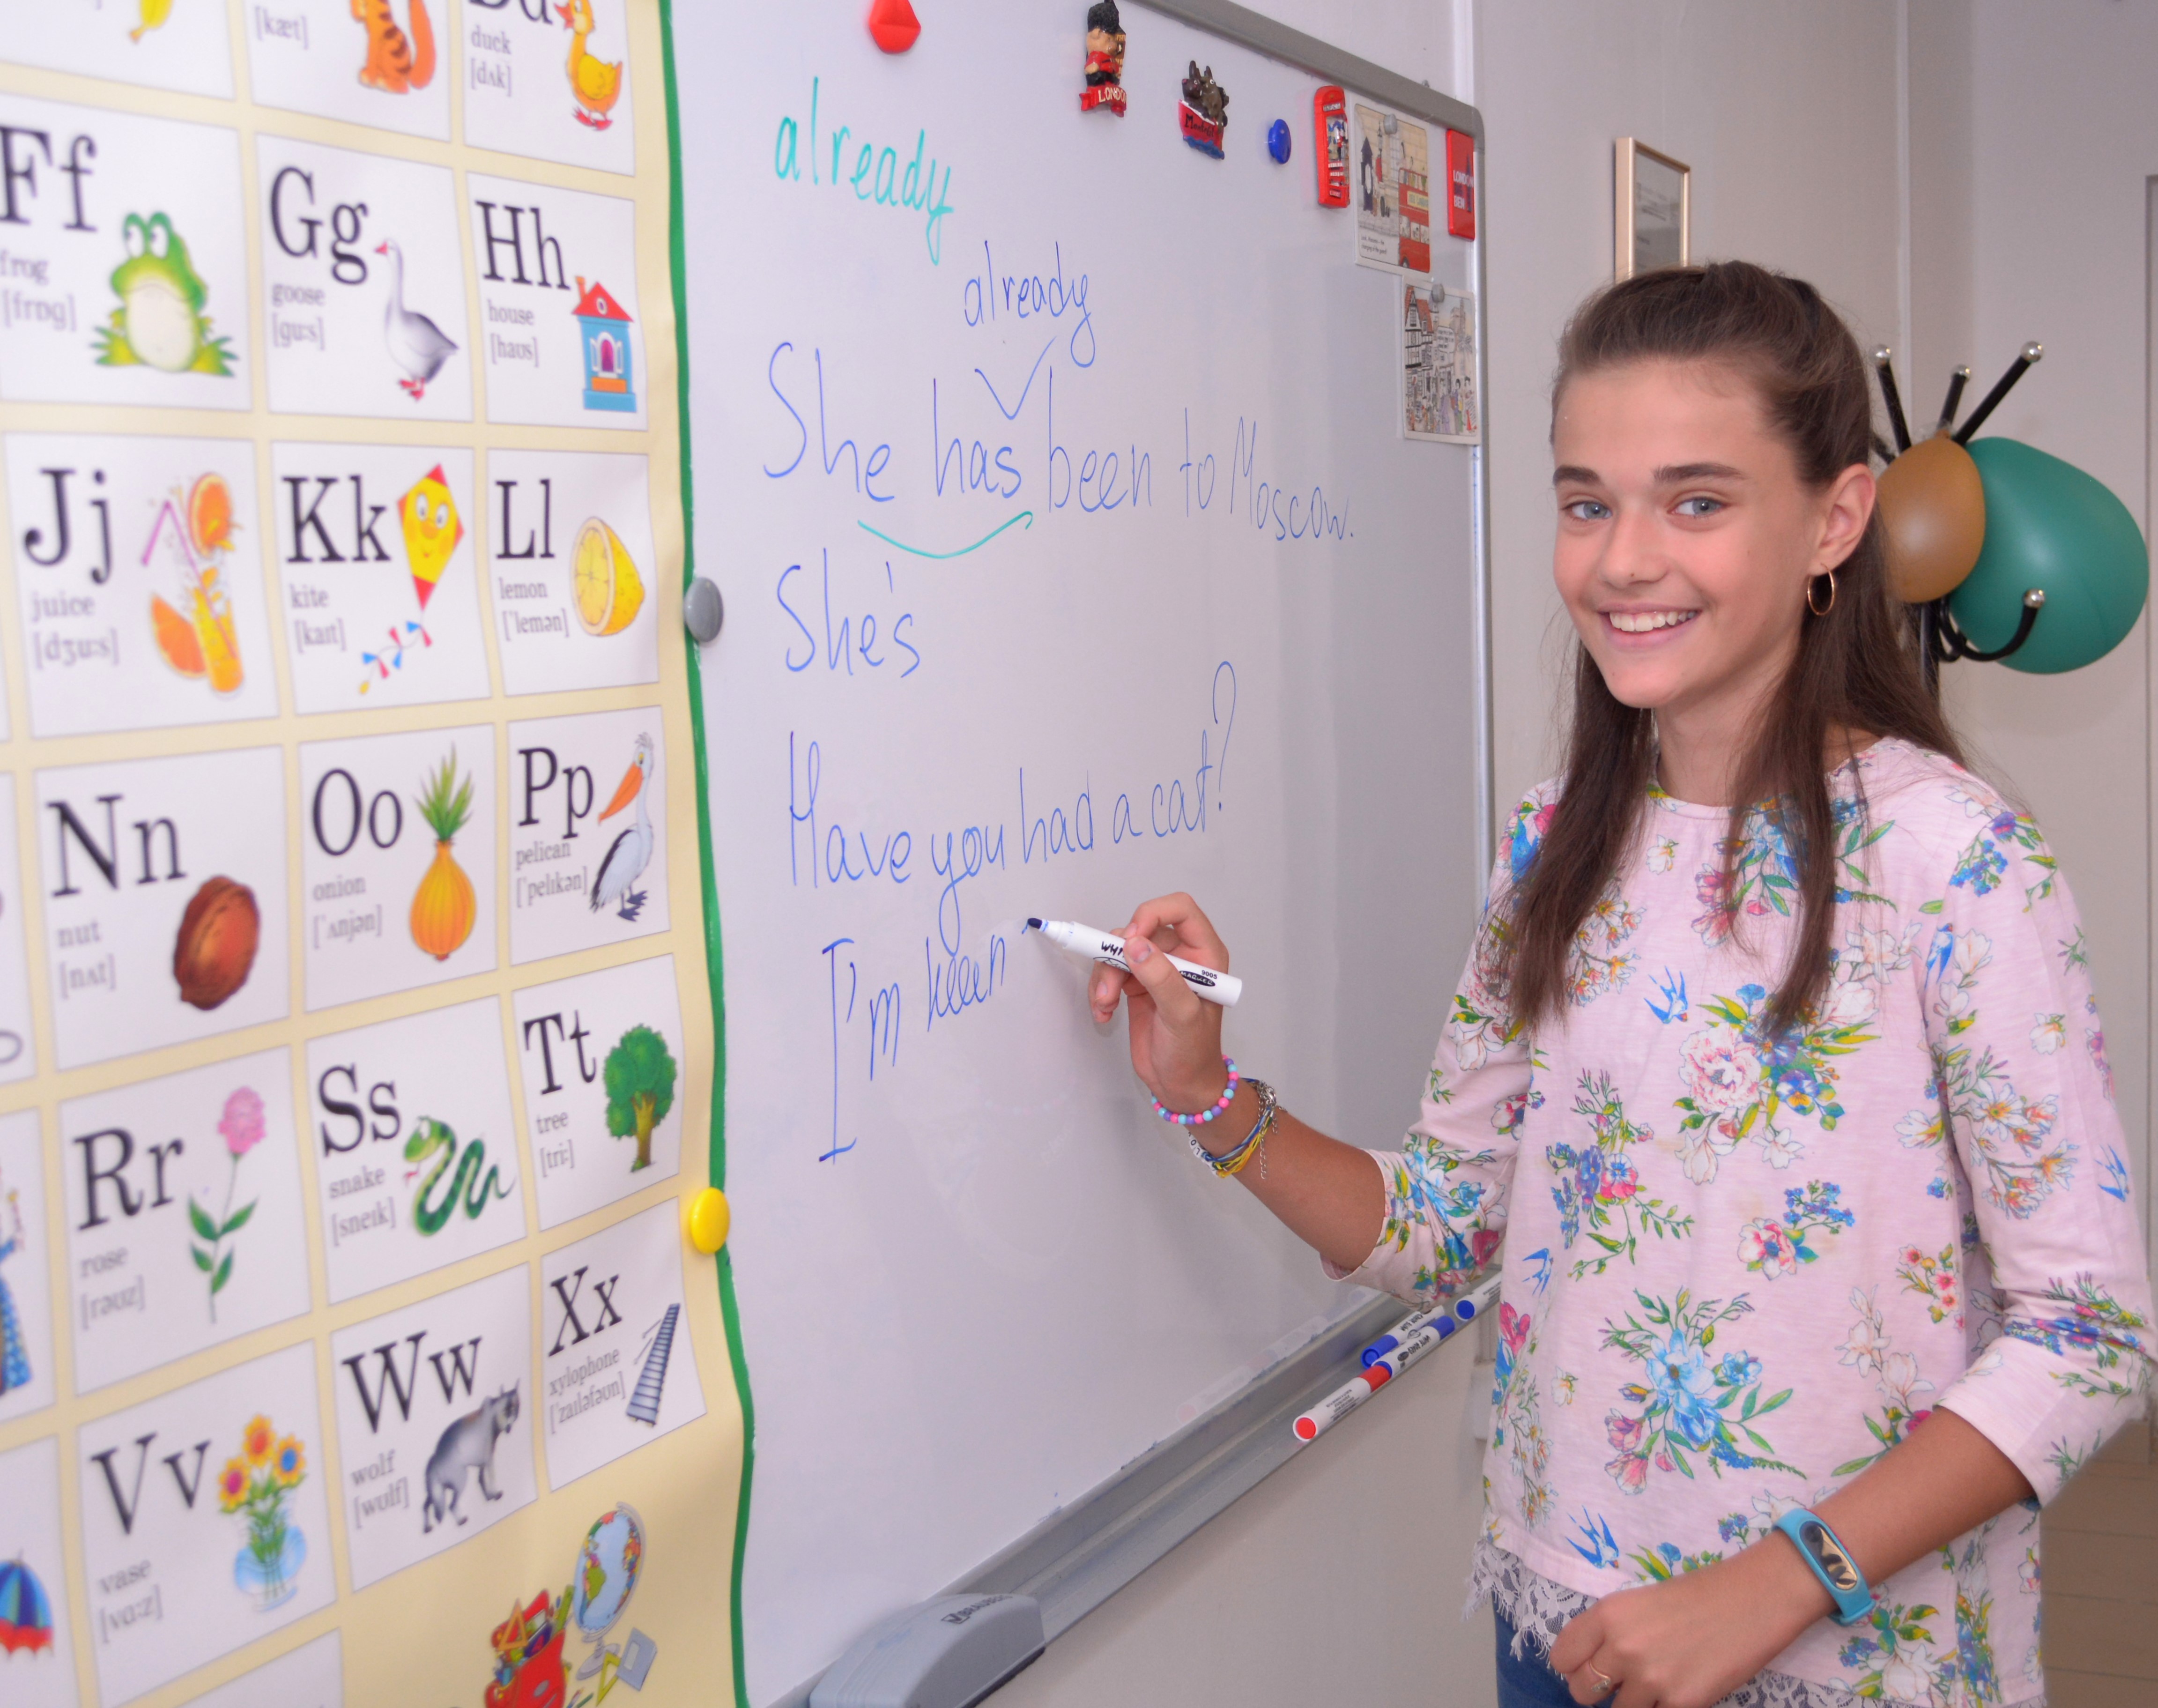 [kæt]
duck
[dʌk]
Ff
frog
[frɒg]
Gg
goose
[gu:s]
Hh
house
[haʊs]
Jj
juice
[dʒu:s]
Kk
kite
[kaɪt]
Ll
lemon
['lemən]
Nn
nut
[nʌt]
Oo
onion
['ʌnjən]
Pp
pelican
['pelɪkən]
Rr
rose
[rəʊz]
Ss
snake
[sneɪk]
Tt
tree
[tri:]
Vv
vase
[vɑ:z]
Ww
wolf
[wʊlf]
Xx
xylophone
['zaɪləfəʊn]
already
already
She has been to Moscow.
She's
Have you had a cat?
I'm keen
LONDON
9005